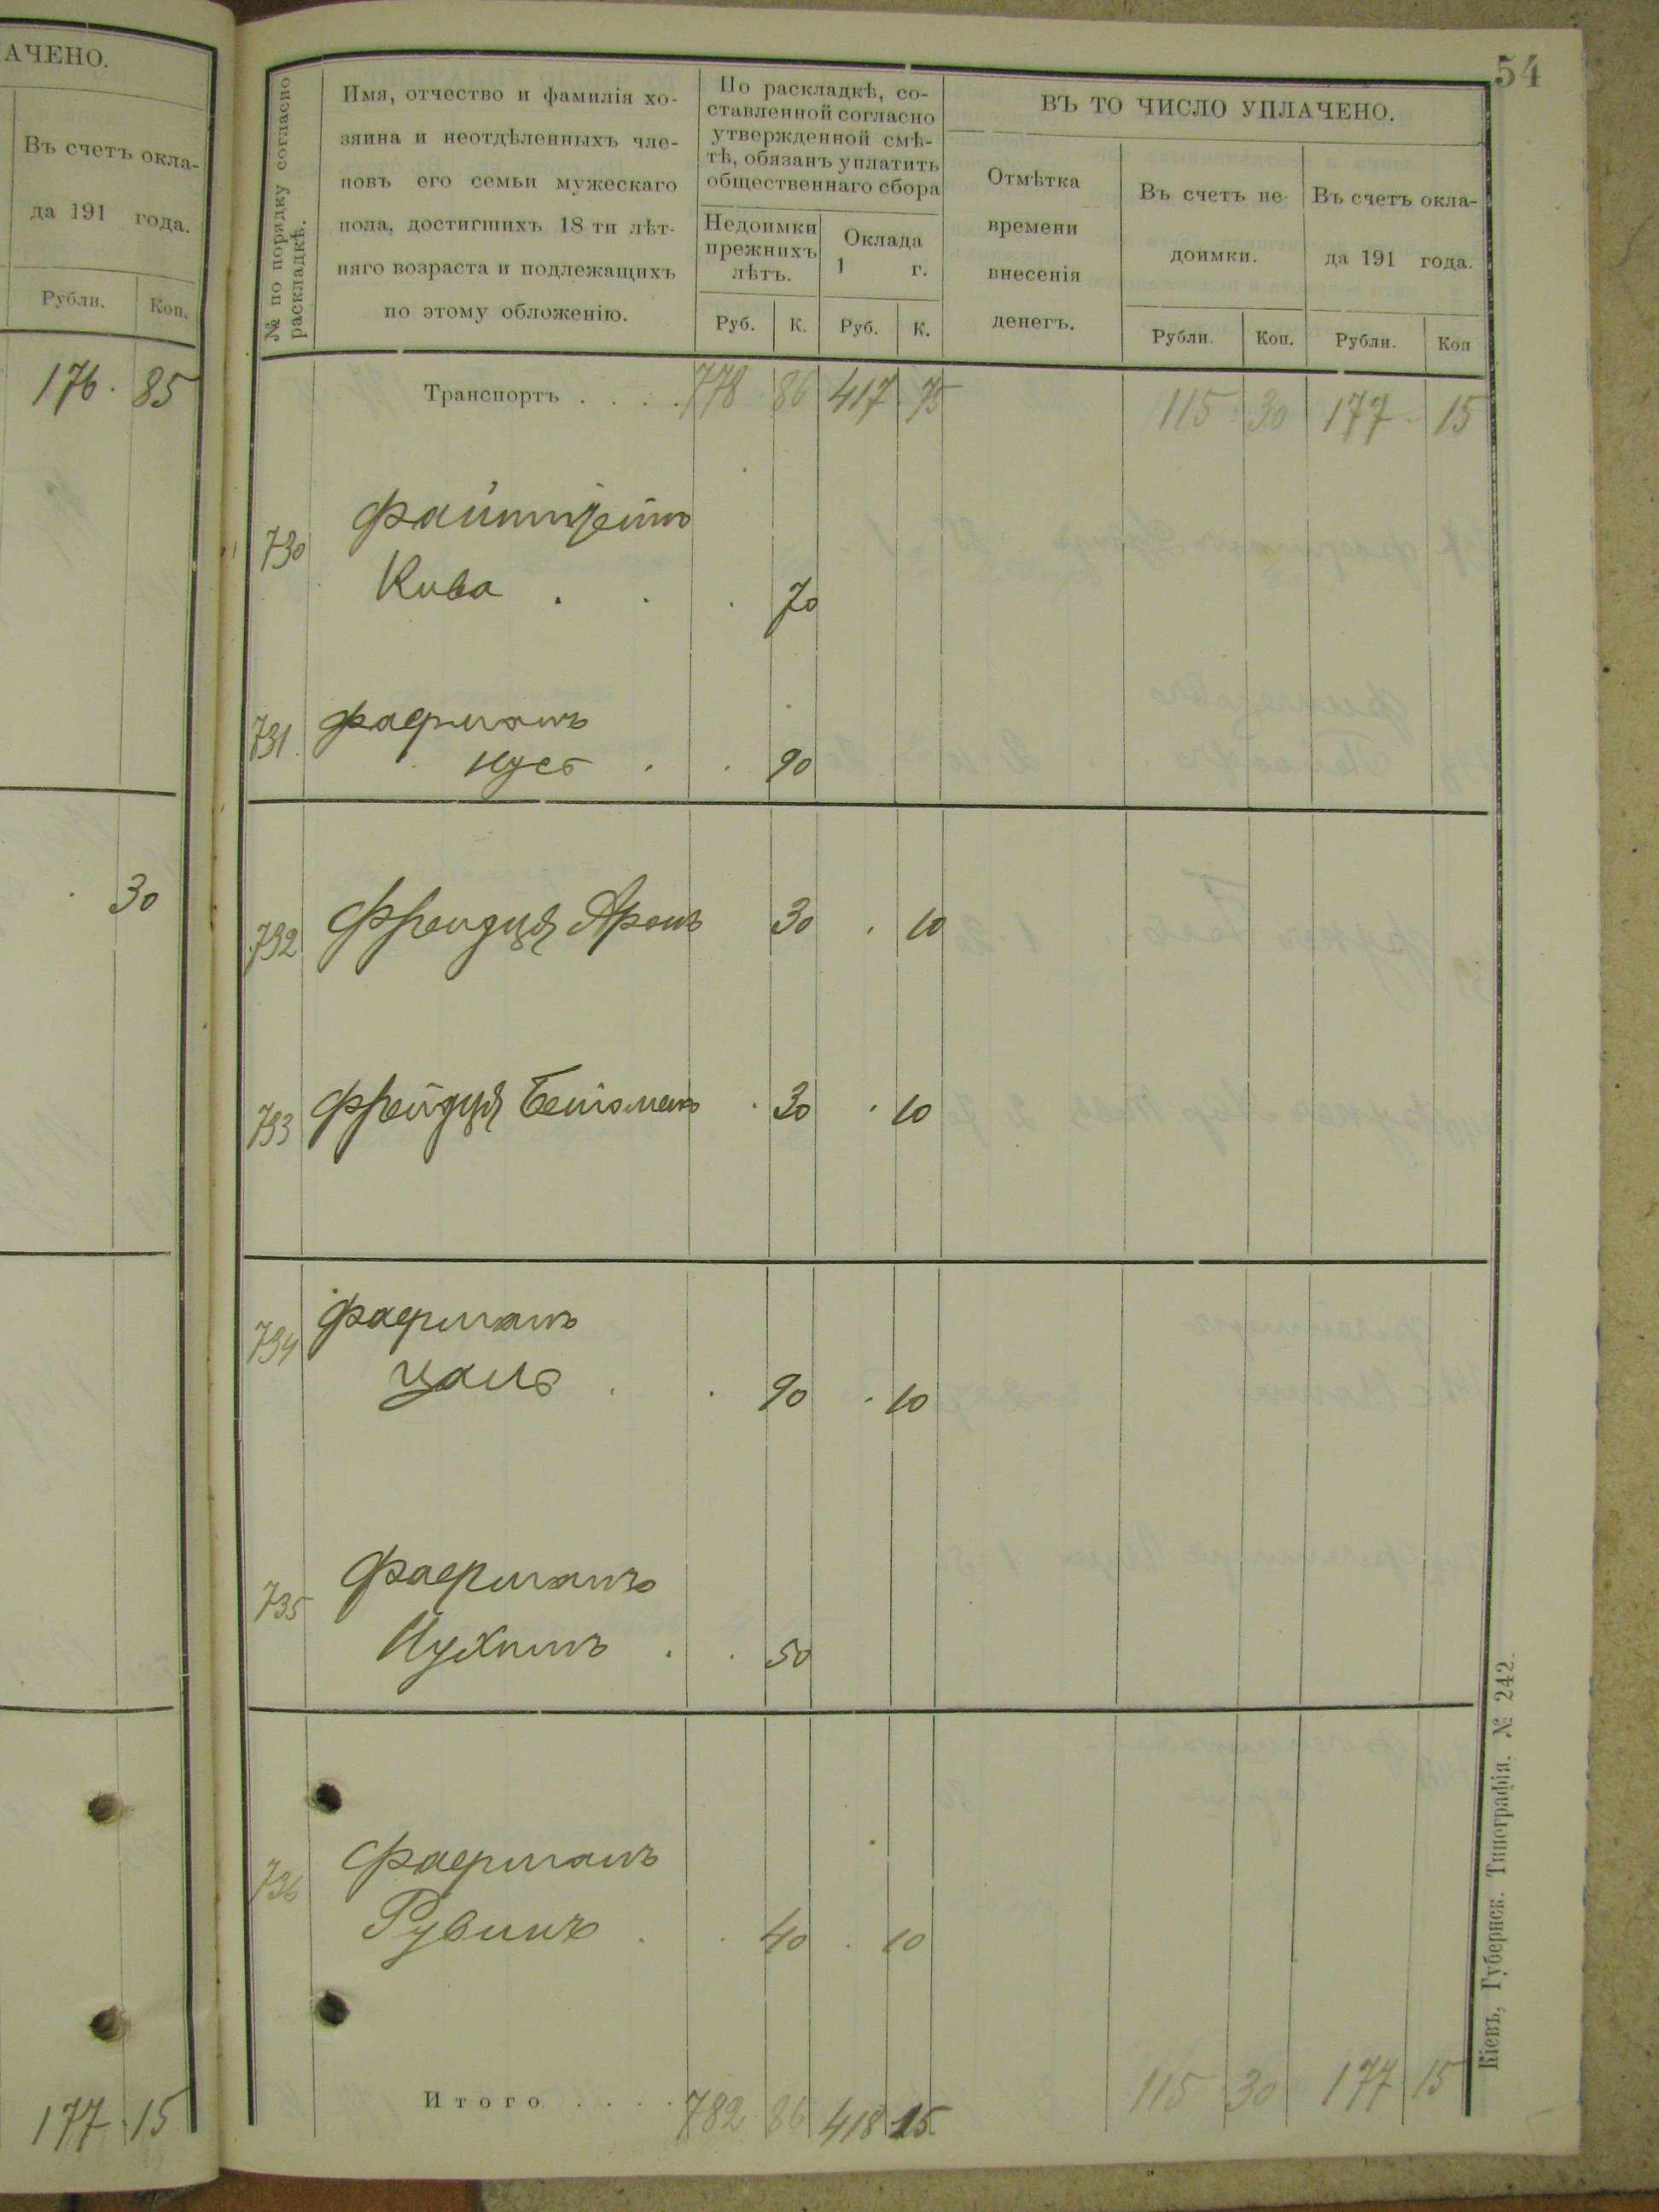 АЧЕНО.
Въ счетъ окла-
да 191 года.
Рубли. Коп.
176. 85
30
177. 15
54
№ по порядку согласно
раскладкѣ.
Имя, отчество и фамилія хо-
зяина и неотдѣленныхъ чле-
новъ его семьи мужескаго
пола, достигшихъ 18 ти лѣт-
няго возраста и подлежащихъ
по этому обложенію.
По раскладкѣ, со-
ставленной согласно
утвержденной смѣ-
тѣ, обязанъ уплатить
общественнаго сбора
Недоимки
прежнихъ
лѣтъ.
Оклада
1 г.
Руб. К. Руб. К.
ВЪ ТО ЧИСЛО УПЛАЧЕНО.
Отмѣтка
времени
внесенія
денегъ.
Въ счетъ не-
доимки.
Въ счетъ окла-
да 191 года.
Рубли. Коп. Рубли. Коп
Транспортъ . . . . 778 86 417 75 115 30 177. 15
730
Кива . . . 70
731 Фаерманъ
. . 90
732 Аронъ 30 . 10
733 . 30 . 10
734 Фаерманъ
Цаль . . 90 . 10
735 Фаерманъ
. . 50
736 Фаерманъ
Рувинъ . . 40 . 10
Итого . . . . 782 86 418 15. 115 30 177 15
Кіевъ, Губернск. Типографія. № 242.